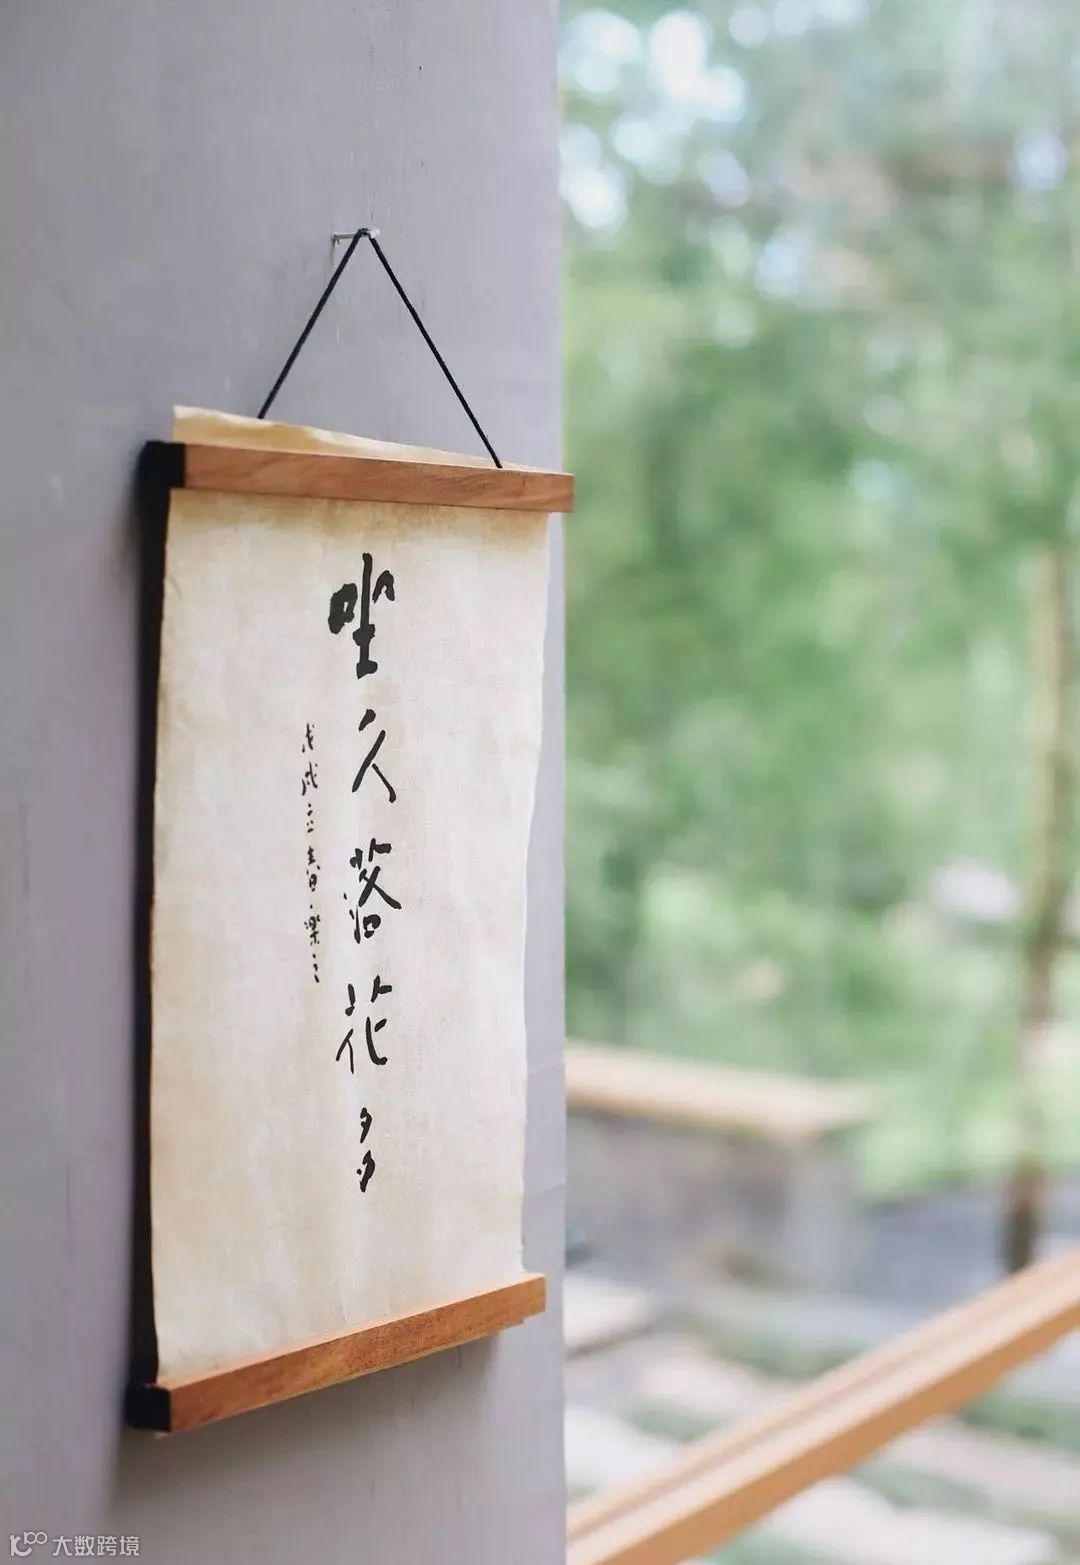 坐久落花多
戊戌立春樂之
大数跨境